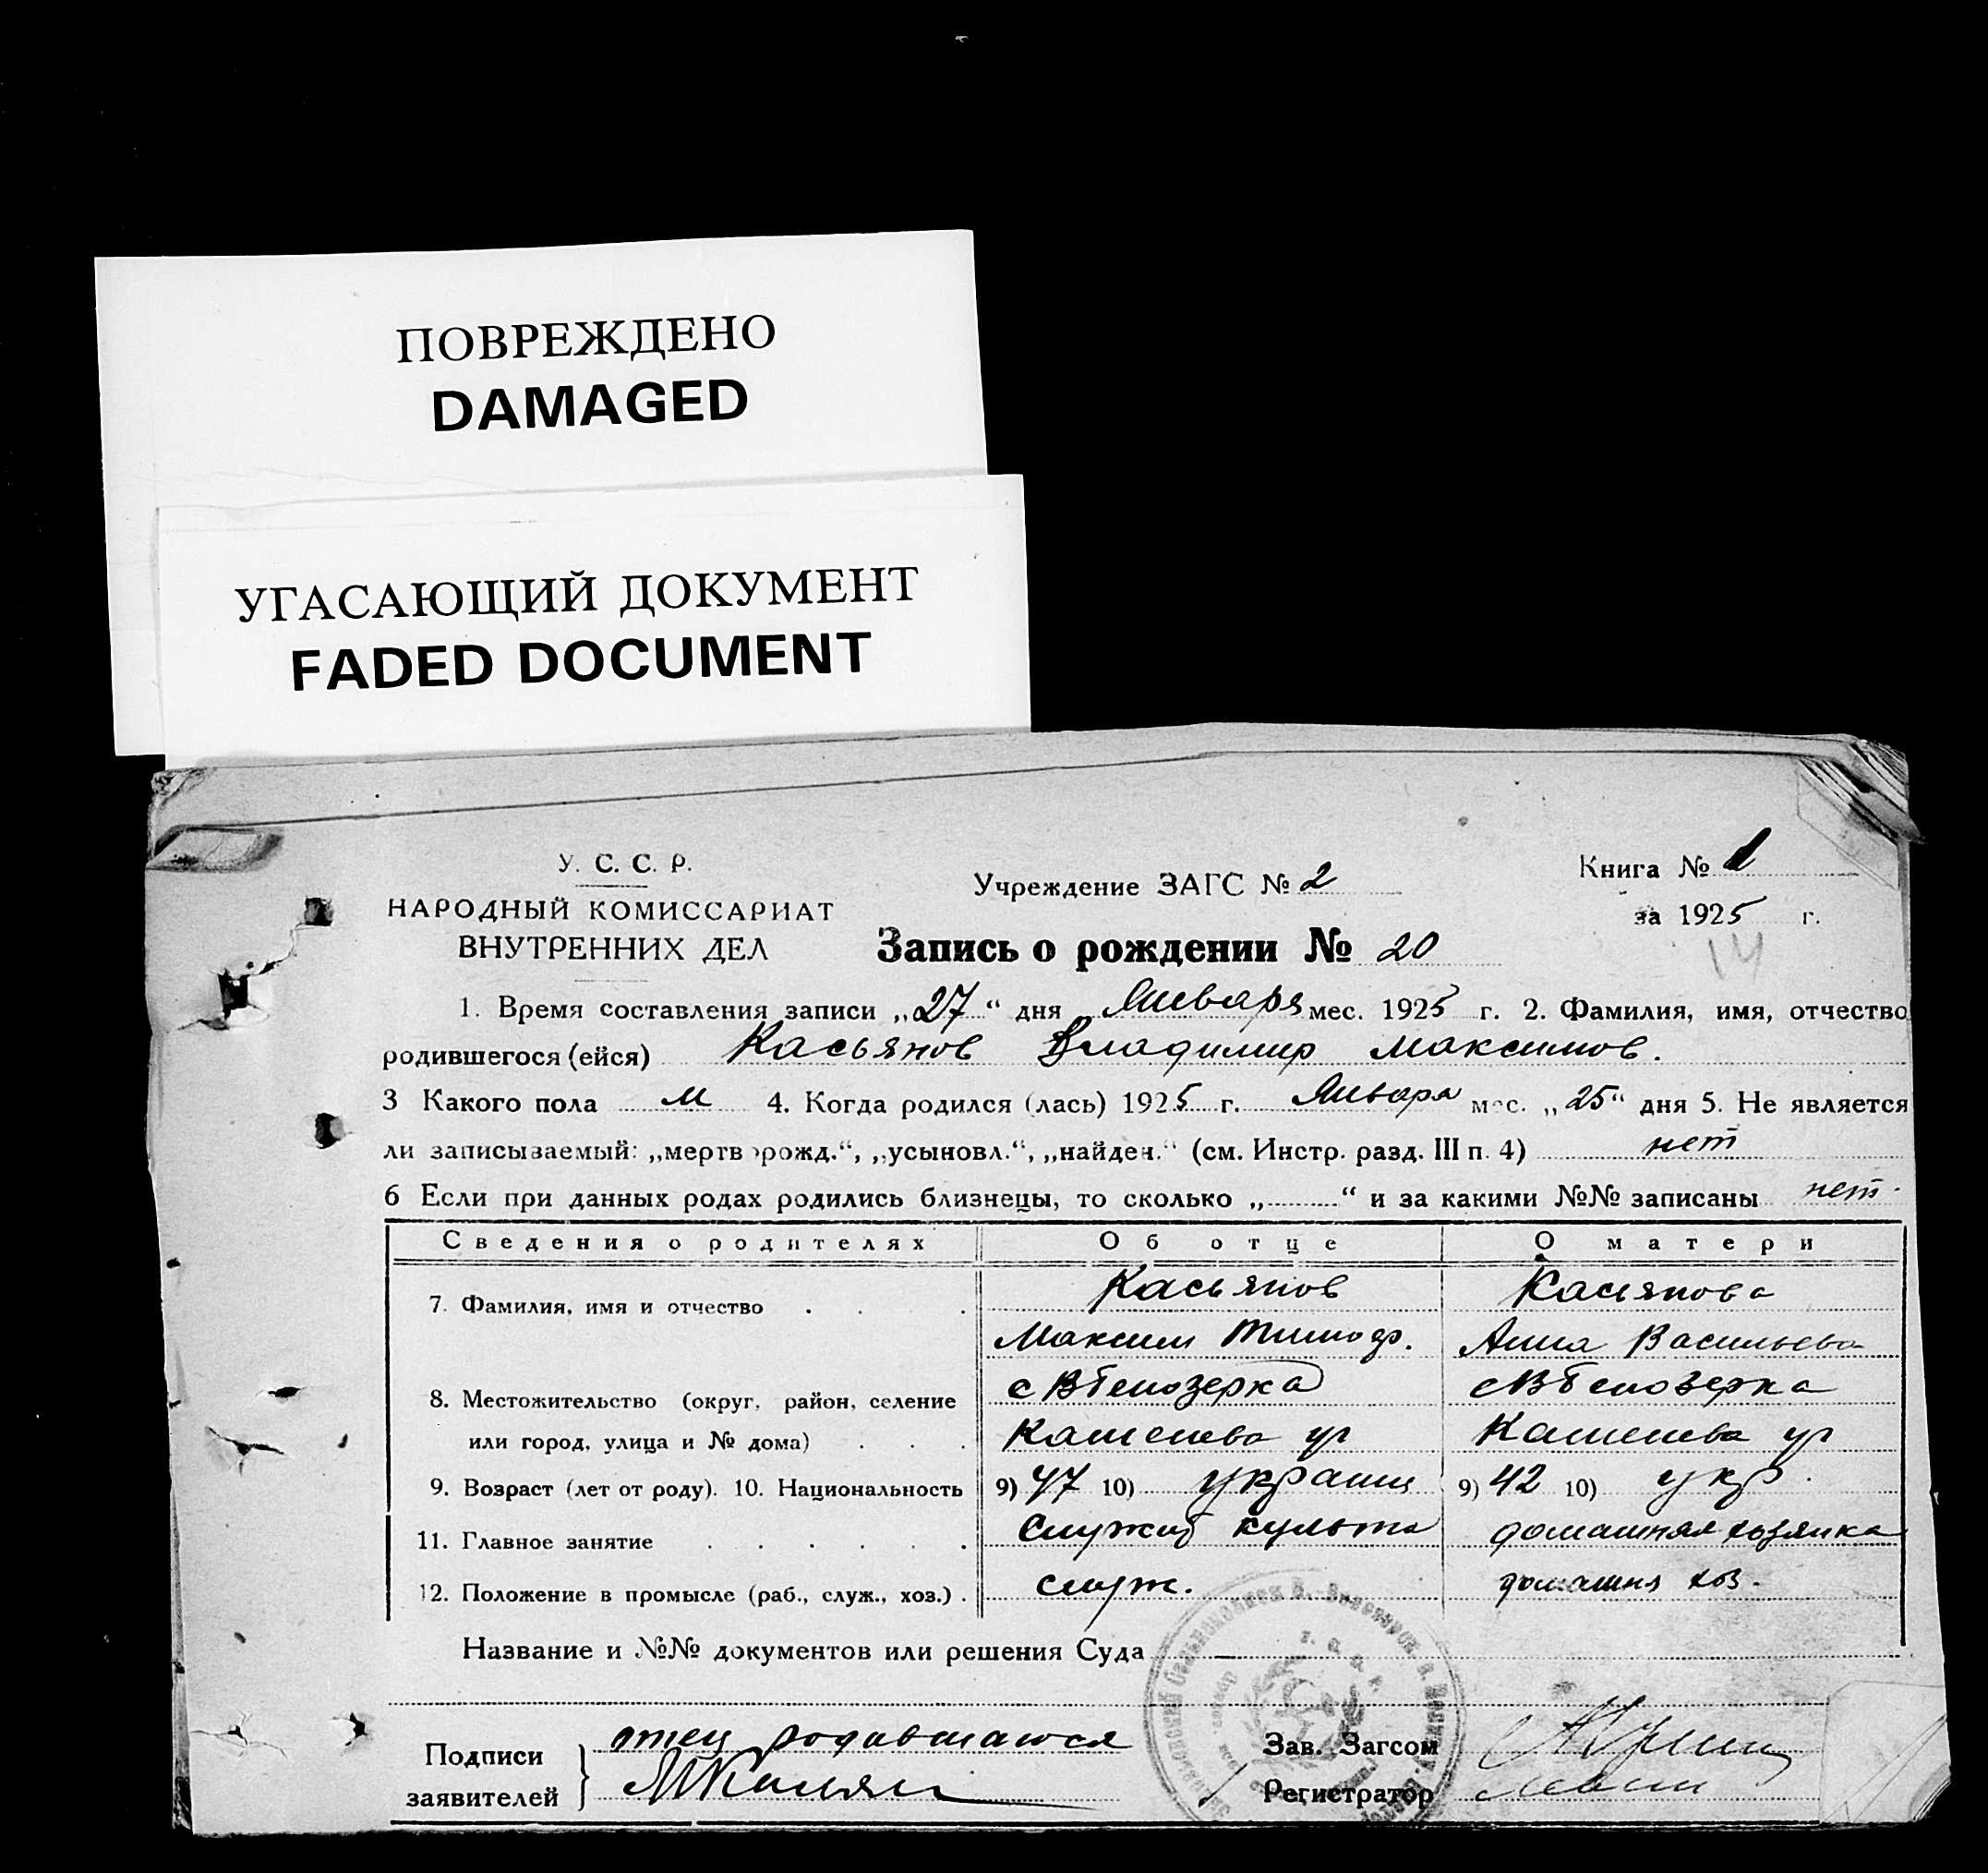 ПОВРЕЖДЕНО
DAMAGED
УГАСАЮЩИЙ ДОКУМЕНТ
FADED DOCUMENT
У. С. С. Р.
НАРОДНЫЙ КОМИССАРИАТ
ВНУТРЕННИХ ДЕЛ
Учреждение ЗАГС № 2
Книга № 1
за 1925 г.
14
Запись о рождении № 20
1. Время составления записи „27“ дня Января мес. 1925 г. 2. Фамилия, имя, отчество
родившегося (ейся) Касьянов Владимир Максимов.
3 Какого пола м 4. Когда родился (лась) 1925 г. Января мес. „25“ дня 5. Не является
ли записываемый: „мертворожд.“, „усыновл.“, „найден.“ (см. Инстр. разд. III п. 4) нет
6 Если при данных родах родились близнецы, то сколько „..........“ и за какими №№ записаны нет.
Сведения о родителях Об отце О матери
7. Фамилия, имя и отчество . . . Касьянов Касьянова
Максим Тимоф. Анна Васильева
8. Местожительство (округ, район, селение с В Белозерка с В Белозерка
или город, улица и № дома) . . . Камшева ул Камшева ул
9. Возраст (лет от роду). 10. Национальность 9) 47 10) украин 9) 42 10) укр.
11. Главное занятие . . . . . . служит культа домашняя хозяйка
12. Положение в промысле (раб., служ., хоз.) . служ. домашня хоз.
Название и №№ документов или решения Суда
Подписи отец родившагося Зав. Загсом
заявителей МКасьян Регистратор